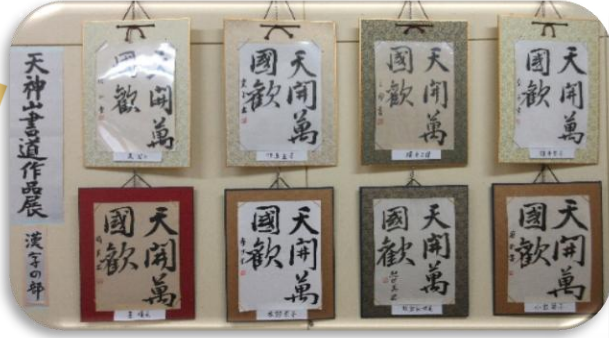 天神山書道作品展
漢字の部
天開萬
國歓
天開萬
國歓
天開萬
國歓
天開萬
國歓
天開萬
國歓
天開萬
國歓
天開萬
國歓
天開萬
國歓